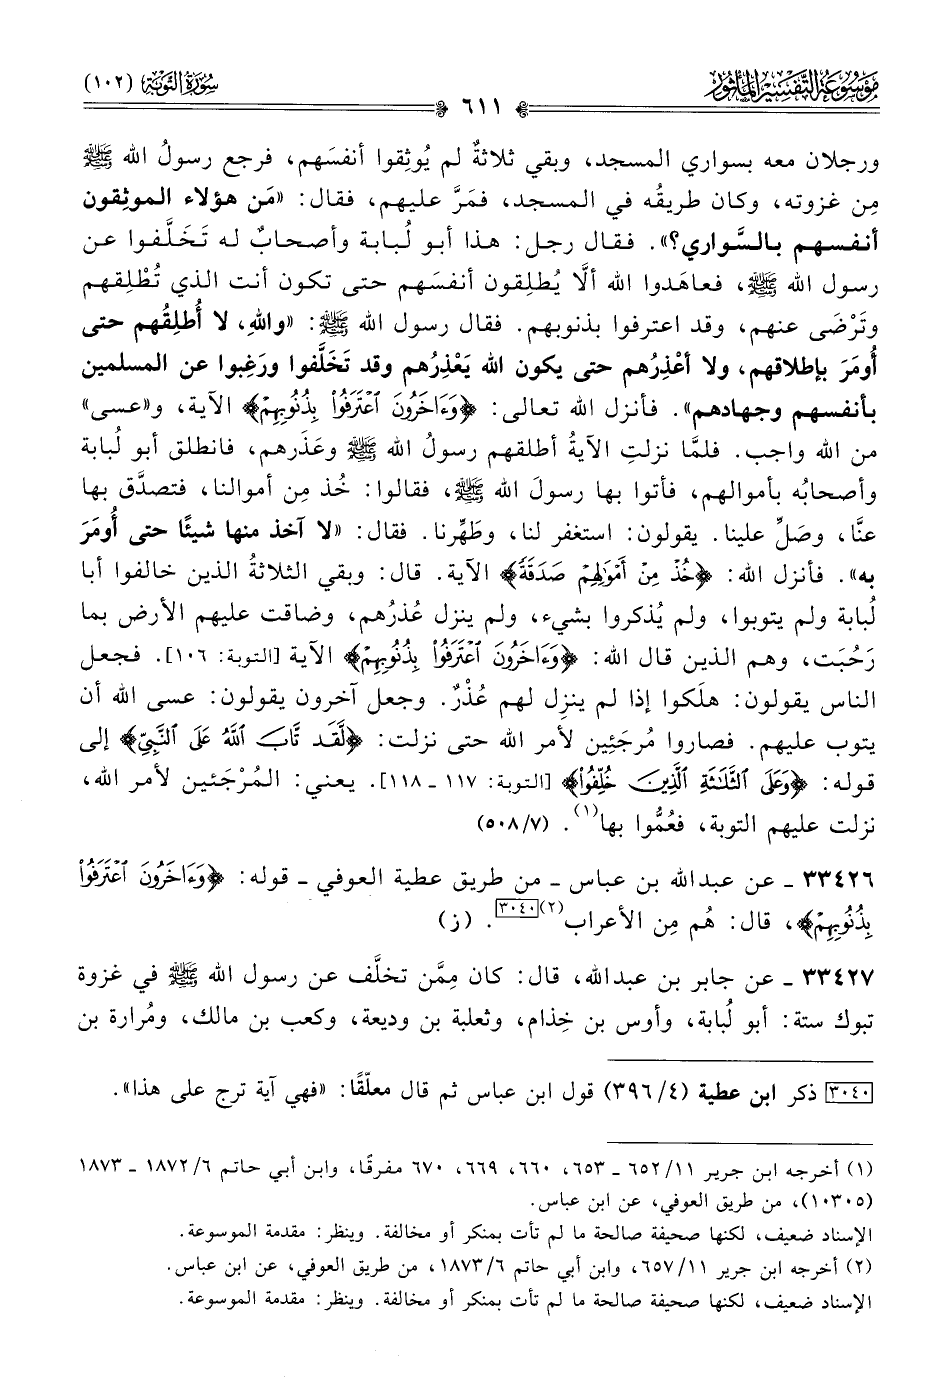 موسوعة التفسير المأثور
سورة التوبة (١٠٢)
٦١١
ورجلان معه بسواري المسجد، وبقي ثلاثةٌ لم يُوثِقوا أنفسَهم، فرجع رسولُ الله ﷺ
مِن غزوته، وكان طريقُه في المسجد، فمَرَّ عليهم، فقال: «مَن هؤلاء الموثِقون
أنفسهم بالسَّواري؟». فقال رجل: هذا أبو لُبابة وأصحابٌ له تَخَلَّفوا عن
رسول الله ﷺ، فعاهَدوا الله ألَّا يُطلِقون أنفسَهم حتى تكون أنت الذي تُطْلِقهم
وتَرْضَى عنهم، وقد اعترفوا بذنوبهم. فقال رسول الله ﷺ: «واللهِ، لا أُطلِقُهم حتى
أُومَرَ بإطلاقهم، ولا أعْذِرُهم حتى يكون الله يَعْذِرُهم وقد تَخَلَّفوا ورَغِبوا عن المسلمين
بأنفسهم وجهادهم». فأنزل الله تعالى: ﴿وَءَاخَرُونَ ٱعۡتَرَفُواْ بِذُنُوبِهِمۡ﴾ الآية، و«عسى»
من الله واجب. فلمَّا نزلتِ الآيةُ أطلقهم رسولُ الله ﷺ وعَذَرهم، فانطلق أبو لُبابة
وأصحابُه بأموالهم، فأتوا بها رسولَ الله ﷺ، فقالوا: خُذ مِن أموالنا، فتصدَّق بها
عنَّا، وصَلِّ علينا. يقولون: استغفر لنا، وطَهِّرنا. فقال: «لا آخذ منها شيئًا حتى أُومَرَ
به». فأنزل الله: ﴿خُذۡ مِنۡ أَمۡوَٰلِهِمۡ صَدَقَةٗ﴾ الآية. قال: وبقي الثلاثةُ الذين خالفوا أبا
لُبابة ولم يتوبوا، ولم يُذكروا بشيء، ولم ينزل عُذرُهم، وضاقت عليهم الأرض بما
رَحُبَت، وهم الذين قال الله: ﴿وَءَاخَرُونَ ٱعۡتَرَفُواْ بِذُنُوبِهِمۡ﴾ الآية [التوبة: ١٠٦]. فجعل
الناس يقولون: هلَكوا إذا لم ينزِل لهم عُذْرٌ. وجعل آخرون يقولون: عسى الله أن
يتوب عليهم. فصاروا مُرجَئِين لأمر الله حتى نزلت: ﴿لَّقَد تَّابَ ٱللَّهُ عَلَى ٱلنَّبِيِّ﴾ إلى
قوله: ﴿وَعَلَى ٱلثَّلَٰثَةِ ٱلَّذِينَ خُلِّفُواْ﴾ [التوبة: ١١٧ ـ ١١٨]. يعني: المُرْجَئين لأمر الله،
نزلت عليهم التوبة، فعُمُّوا بها(١). (٥٠٨/٧)
٣٣٤٢٦ ـ عن عبدالله بن عباس ـ من طريق عطية العوفي ـ قوله: ﴿وَءَاخَرُونَ ٱعۡتَرَفُواْ
بِذُنُوبِهِمۡ﴾، قال: هُم مِن الأعراب(٢)[٣٠٤٠]. (ز)
٣٣٤٢٧ ـ عن جابر بن عبدالله، قال: كان مِمَّن تخلَّف عن رسول الله ﷺ في غزوة
تبوك ستة: أبو لُبابة، وأوس بن خِذام، وثعلبة بن وديعة، وكعب بن مالك، ومُرارة بن
[٣٠٤٠] ذكر ابن عطية (٣٩٦/٤) قول ابن عباس ثم قال معلّقًا: «فهي آية ترج على هذا».
(١) أخرجه ابن جرير ٦٥٢/١١ ـ ٦٥٣، ٦٦٠، ٦٦٩، ٦٧٠ مفرقًا، وابن أبي حاتم ١٨٧٢/٦ ـ ١٨٧٣
(١٠٣٠٥)، من طريق العوفي، عن ابن عباس.
الإسناد ضعيف، لكنها صحيفة صالحة ما لم تأت بمنكر أو مخالفة. وينظر: مقدمة الموسوعة.
(٢) أخرجه ابن جرير ٦٥٧/١١، وابن أبي حاتم ١٨٧٣/٦، من طريق العوفي، عن ابن عباس.
الإسناد ضعيف، لكنها صحيفة صالحة ما لم تأت بمنكر أو مخالفة. وينظر: مقدمة الموسوعة.